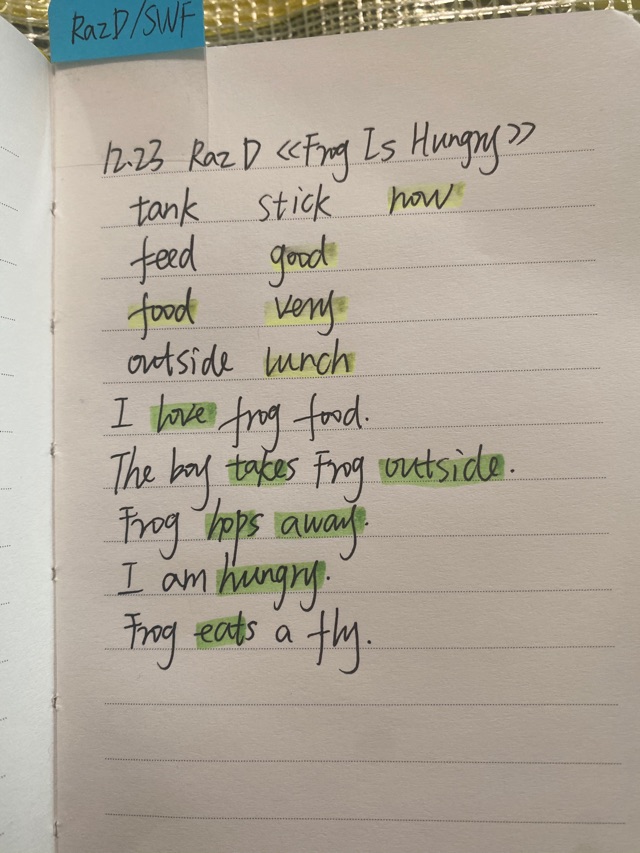 RazD/SWF
12.23 Raz D 《Frog Is Hungry》
tank stick now
feed good
food very
outside lunch
I love frog food.
The boy takes Frog outside.
Frog hops away.
I am hungry.
Frog eats a fly.